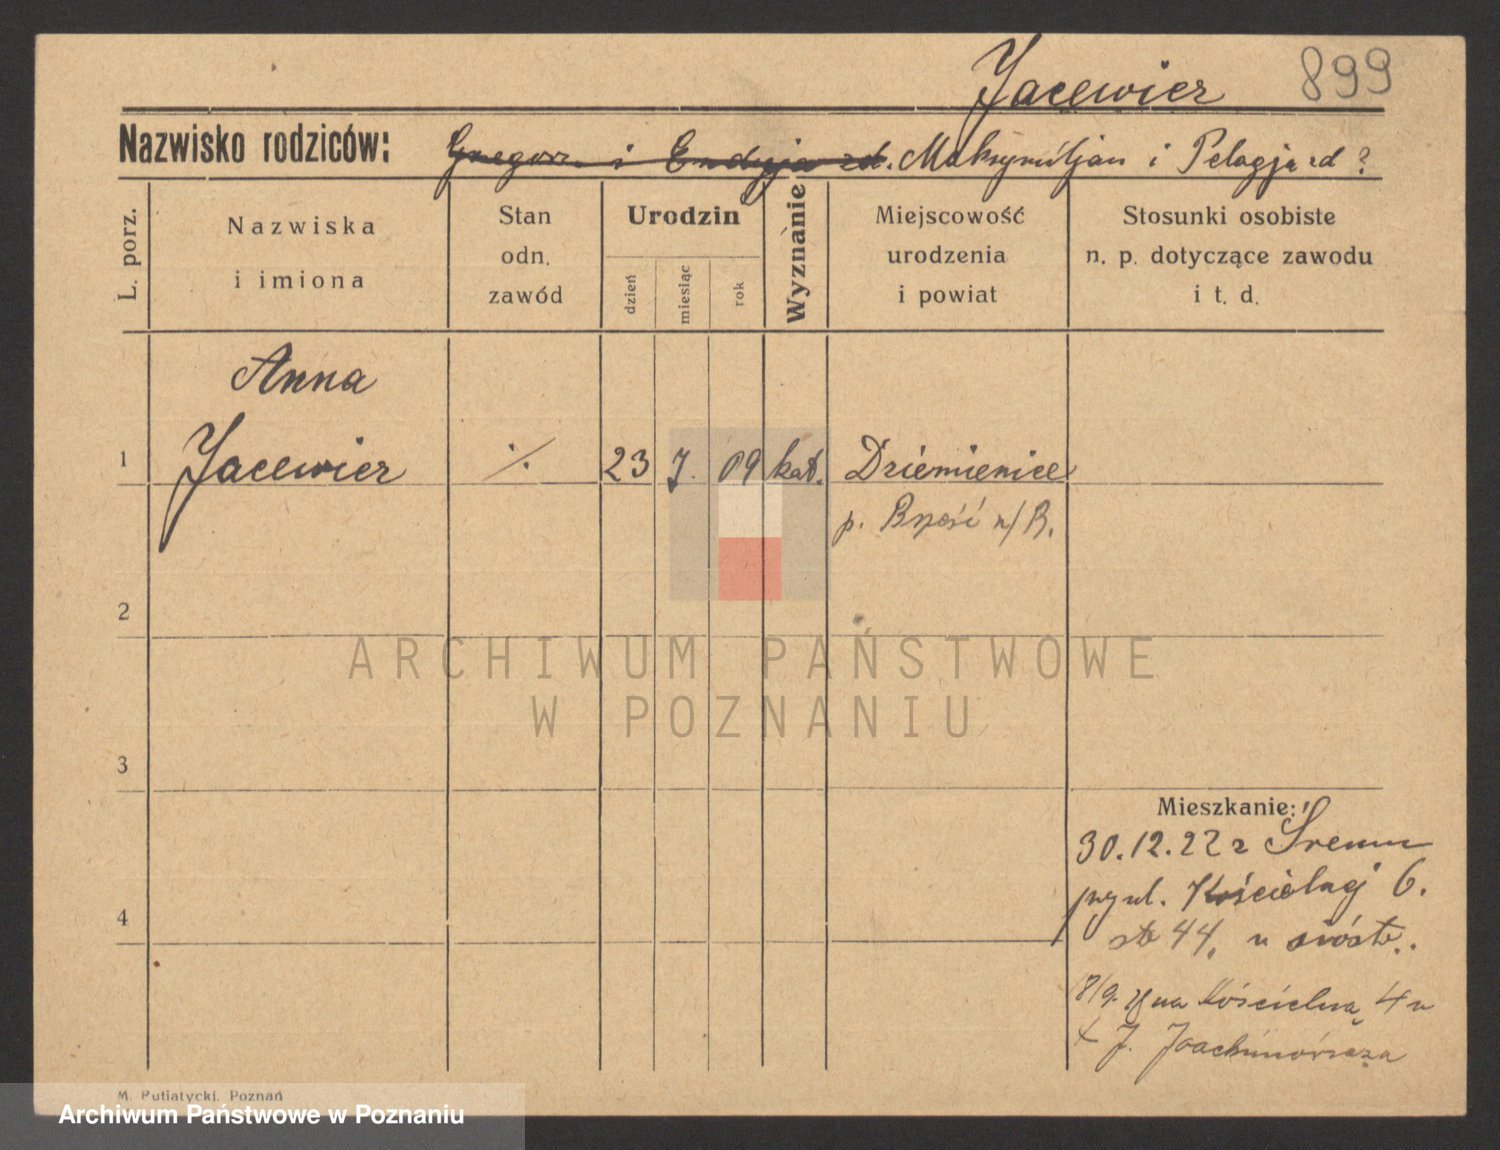 Jacewicz 899
Nazwisko rodziców: Grzegorz i Maksymiljan i Pelagja zd ?
L. porz.
Nazwiska
i imiona
Stan
odn.
zawód
Urodzin
dzień
miesiąc
rok
Wyznanie
Miejscowość
urodzenia
i powiat
Stosunki osobiste
n. p. dotyczące zawodu
i t. d.
Anna
1 Jacewicz ./. 23 7. 09 kat. Dziemienice
p. Brześć n/B.
2
ARCHIWUM PAŃSTWOWE
W POZNANIU
3
Mieszkanie:
30.12.22 z Śremu
przy ul. Kościelnej 6.
4
44, u
18/9. na Kościelną 4 u
J. Joachimowicza
M. Putiatycki. Poznań
Archiwum Państwowe w Poznaniu